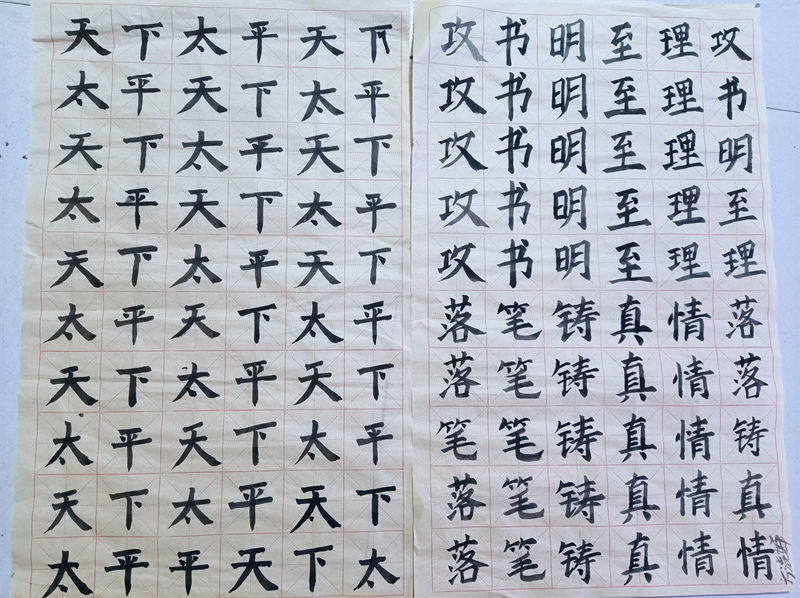 天下太平天下
太平天下太平
天下太平天下
太平天下太平
天下太平天下
太平天下太平
天下太平天下
太平天下太平
天下太平太下
太平平天下太
攻书明至理攻
攻书明至理书
攻书明至理明
攻书明至理至
攻书明至理理
落笔铸真情落
落笔铸真情落
笔笔铸真情铸
落笔铸真情真
落笔铸真情情